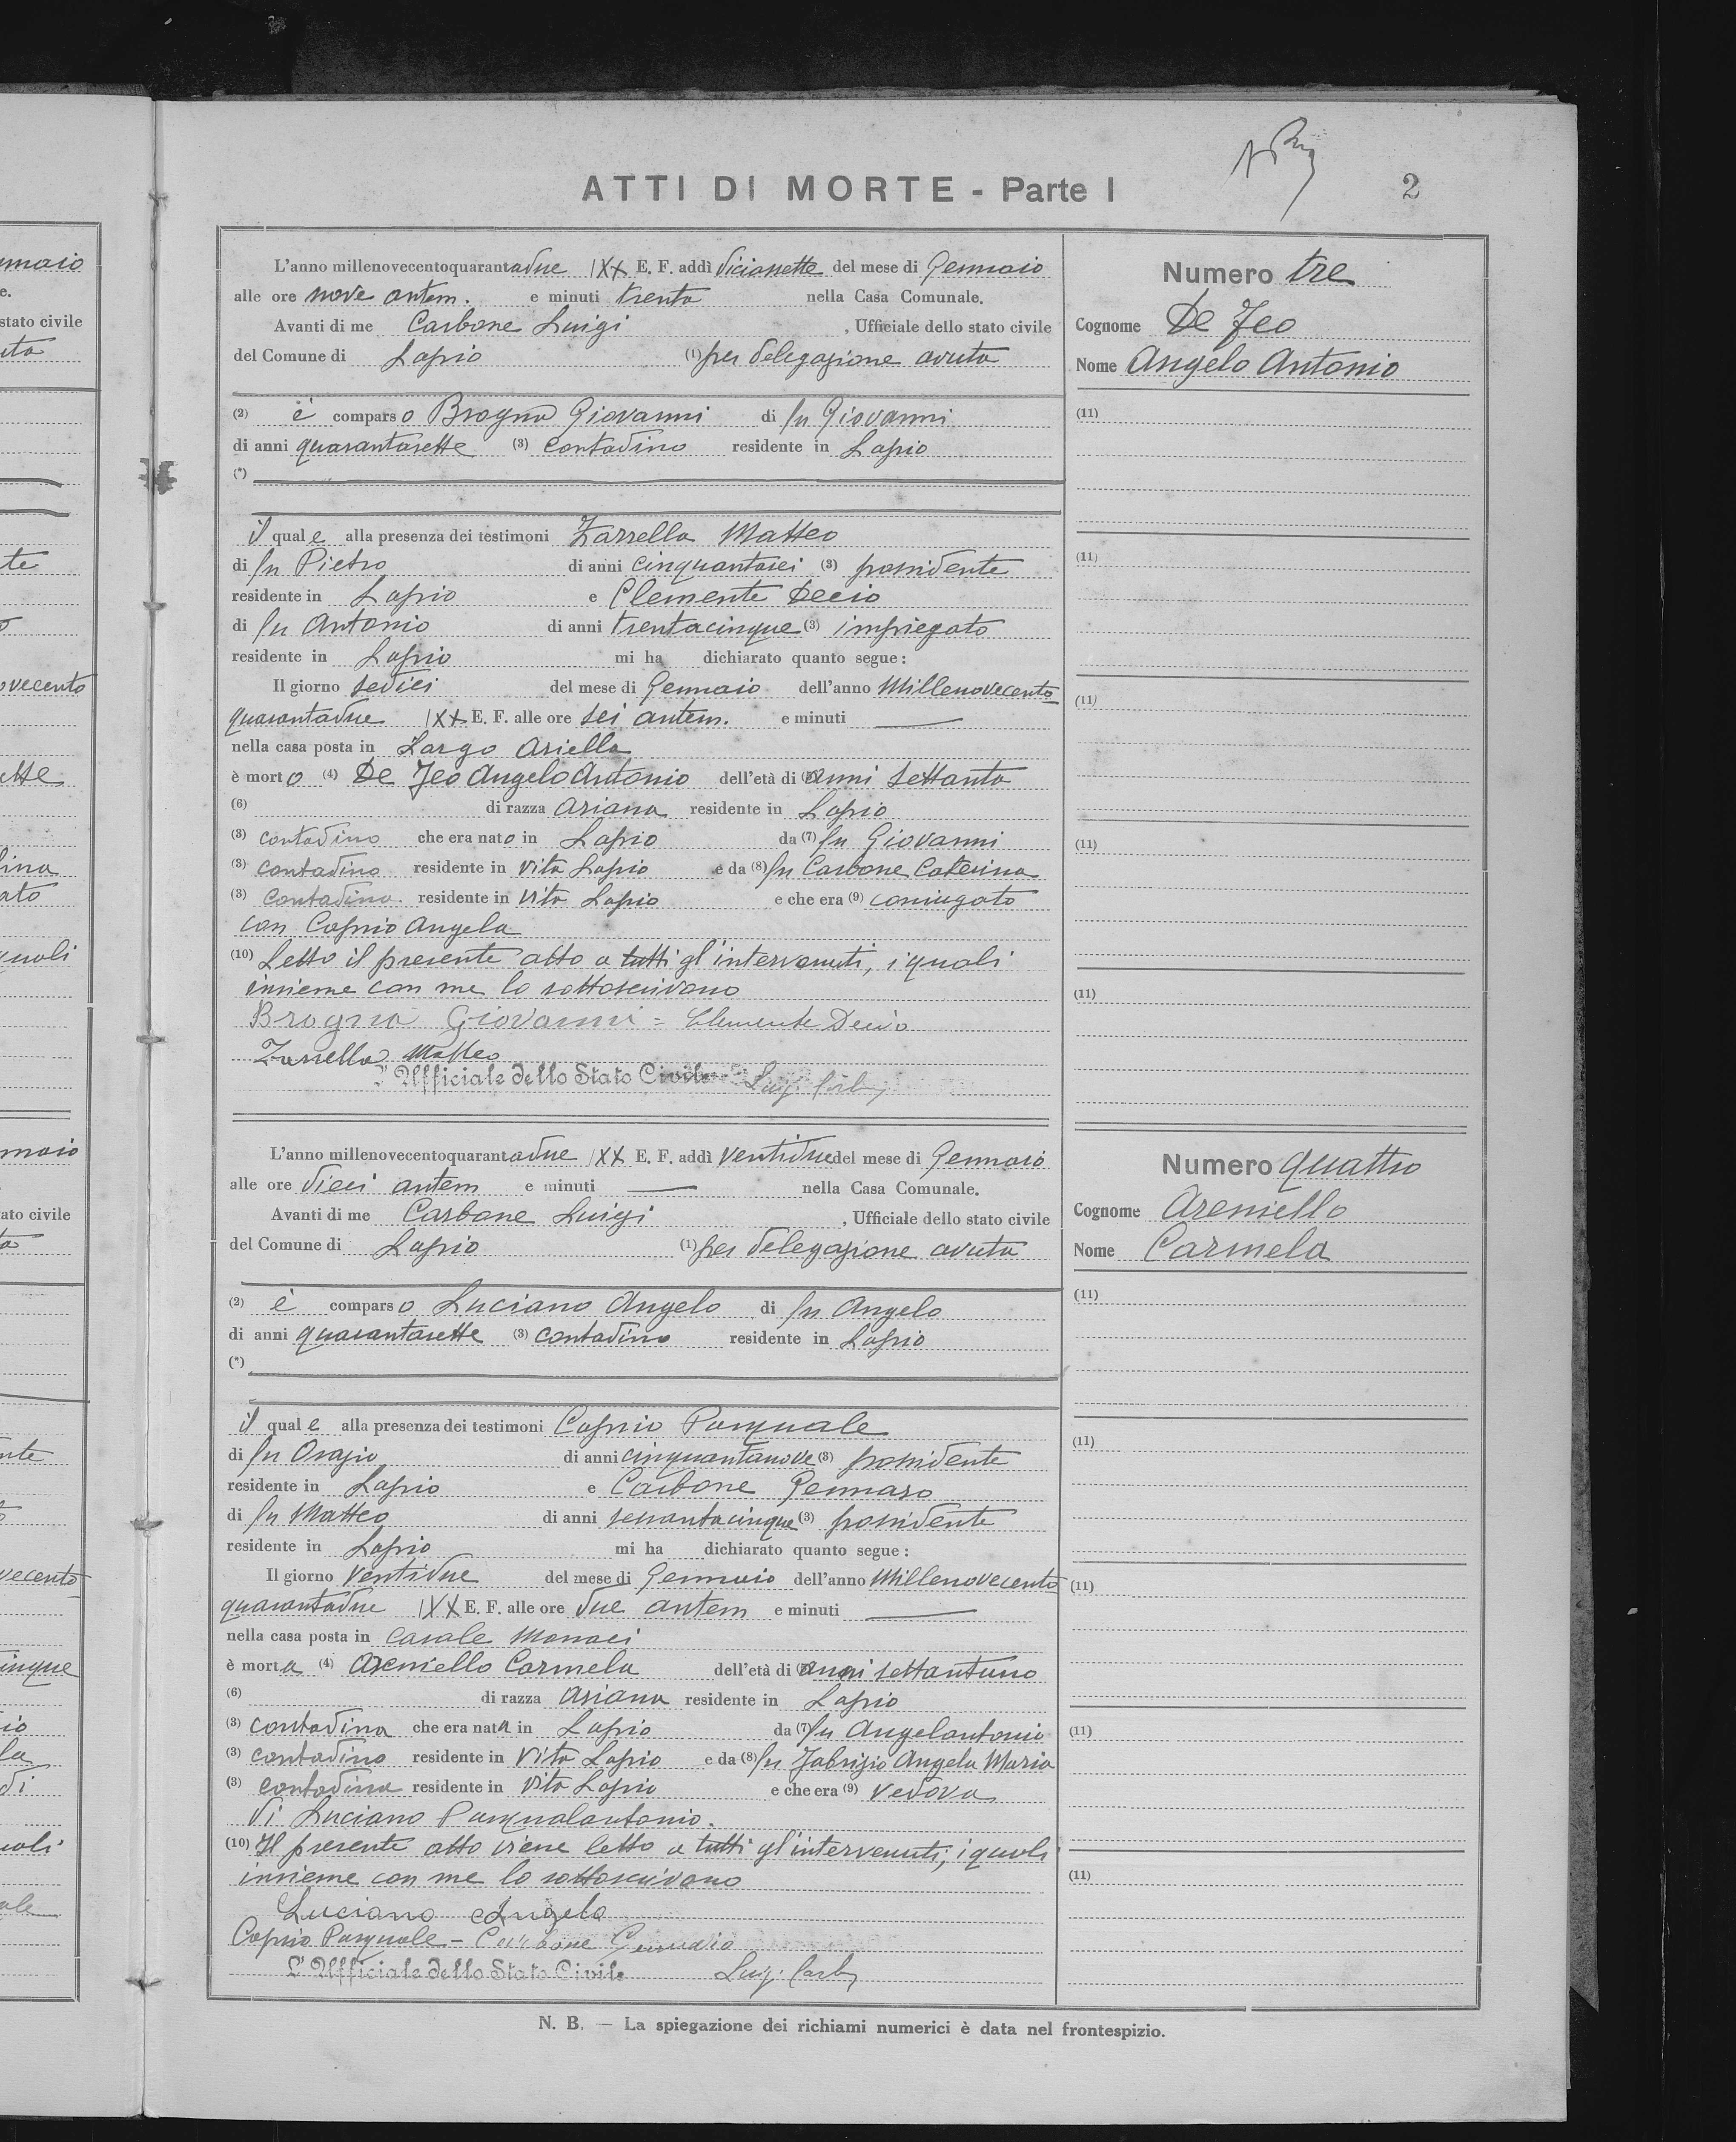 ATTI DI MORTE - Parte I
2
L'anno millenovecentoquarantadue XX E. F. addì diciassette del mese di Gennaio
alle ore nove antem. e minuti trenta nella Casa Comunale.
Avanti di me Carbone Luigi , Ufficiale dello stato civile
del Comune di Lapio (1) per delegazione avuta
(2) è comparso Brogna Giovanni di fu Giovanni
di anni quarantasette (3) contadino residente in Lapio
(*)
il quale alla presenza dei testimoni Zarrella Matteo
di fu Pietro di anni cinquantasei (3) possidente
residente in Lapio e Clemente Decio
di fu Antonio di anni trentacinque (3) impiegato
residente in Lapio mi ha dichiarato quanto segue :
Il giorno sedici del mese di Gennaio dell'anno Millenovecento
quarantadue XX E. F. alle ore sei antem. e minuti
nella casa posta in Largo Ariella
è morto (4) De Feo Angelo Antonio dell'età di anni settanta
(6) di razza ariana residente in Lapio
(3) contadino che era nato in Lapio da (7) fu Giovanni
(3) contadino residente in vita Lapio e da (8) fu Carbone Caterina
(3) contadina residente in vita Lapio e che era (9) coniugato
con Caprio Angela
(10) Letto il presente atto a tutti gl'intervenuti, i quali
insieme con me lo sottoscrivono
Brogna Giovanni = Clemente Decio
Zarrella Matteo
L'Ufficiale dello Stato Civile Luigi Carb
Numero tre
Cognome De Feo
Nome Angelo Antonio
(11)
(11)
(11)
(11)
(11)
L'anno millenovecentoquarantadue XX E. F. addì ventidue del mese di Gennaio
alle ore dieci antem e minuti nella Casa Comunale.
Avanti di me Carbone Luigi , Ufficiale dello stato civile
del Comune di Lapio (1) per delegazione avuta
(2) è comparso Luciano Angelo di fu Angelo
di anni quarantasette (3) contadino residente in Lapio
(*)
il quale alla presenza dei testimoni Caprio Pasquale
di fu Orazio di anni cinquantanove (3) possidente
residente in Lapio e Carbone Gennaro
di fu Matteo di anni sessantacinque (3) possidente
residente in Lapio mi ha dichiarato quanto segue :
Il giorno ventidue del mese di Gennaio dell'anno Millenovecento
quarantadue XX E. F. alle ore due antem e minuti
nella casa posta in casale Monaci
è morta (4) Areniello Carmela dell'età di anni settantuno
(6) di razza ariana residente in Lapio
(3) contadina che era nata in Lapio da (7) fu Angelantonio
(3) contadino residente in vita Lapio e da (8) fu Fabrizio Angela Maria
(3) contadina residente in vita Lapio e che era (9) vedova
di Luciano Pasqualantonio.
(10) Il presente atto viene letto a tutti gl'intervenuti, i quali
insieme con me lo sottoscrivono
Luciano Angelo
Caprio Pasquale - Carbone Gennaro
L'Ufficiale dello Stato Civile Luigi Carb
Numero quattro
Cognome Areniello
Nome Carmela
(11)
(11)
(11)
(11)
(11)
N. B. — La spiegazione dei richiami numerici è data nel frontespizio.